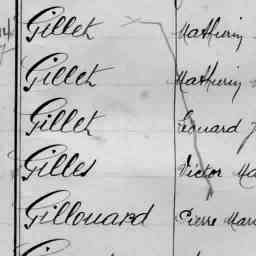 Gillet Mathurin
Gillet Mathurin
Gillet Léonard J
Gilles Victor Ma
Gillouard Pierre Mari